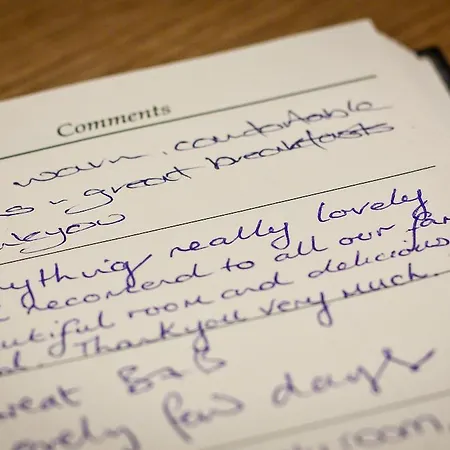 Comments
warm, comfortable
s - great breakfasts
nkyou
ything really lovely
recomend to all our fam
utiful room and delicious
d. Thankyou very much.
reat B&B
ovely few days
room,